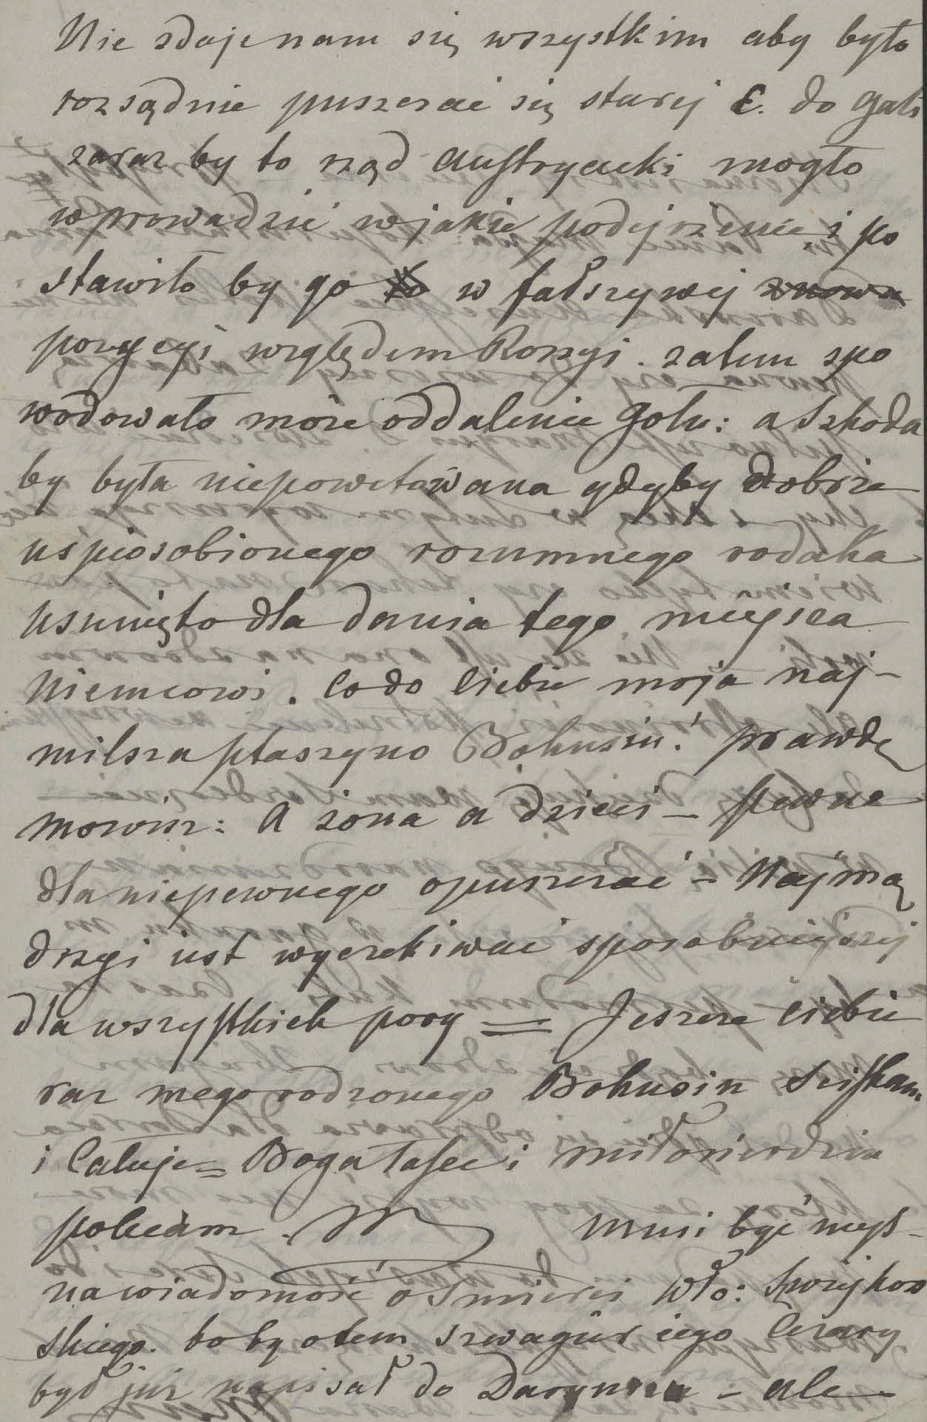 Nie zdaje nam się wszystkim aby było
rozsądnie puszczać się starej C. do Gali
zaraz by to rząd Austryacki mogło
wprowadzić w jakie podejrzenie i po
stawiło by go w fałszywej znowu
pozycyi względem Rossyi. zatem spo
wodowało może oddalenie Gołu: a szkoda
by była niepowetowana gdyby dobrze
usposobionego rozumnego rodaka
usunięto dla dania tego miejsca
Niemcowi. Co do Ciebie moja naj-
milsza ptaszyno Bohusiu! prawdę
mówisz: A żona a dzieci – pewne
dla niepewnego opuszczać – Najmą
drzej jest wyczekiwać sposobniejszej
dla wszystkich pory = Jeszcze Ciebie
raz mego rodzonego Bohusia ściskam
i Całuję = Boga łasce i miłosierdziu
polecam. M Musi być myl-
na wiadomość o śmierci Wło: Spojkow
skiego. bo by o tem szwagier jego Cezary
był już napisał do – ale